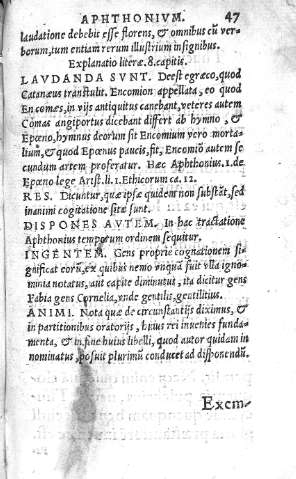 APHTHONIVM. 47
laudatione debebit esse florens, & omnibus cũ ver-
borum, tum entiam rerum illustrium insignibus.
Explanatio literæ. 8. capitis.
LAVDANDA SVNT. Deest græco, quod
Catanæus transtulit. Encomion appellata, eo quod
En comæs, in vijs antiquitus canebant, veteres autem
Comas angiportus dicebant differt ab hymno, &
Epæno, hymnus deorum sit Encomium vero morta-
lium, & quod Epænus paucis, fit, Encomiõ autem se
cundum artem proferatur. Hæc Aphthonius. 11. de
Epæno lege Arist. li. 1. Ethicorum ca. 12.
RES. Dicuntur, quæ ipsæ quidem non substãt, sed
inanimi cogitatione sitæ sunt.
DISPONES AVTEM. In hac tractatione
Aphthonius temporum ordinem sequitur.
INGENTEM. Gens proprie cognationem si-
gnificat eorũ, ex quibus nemo vnquã fuit vlla igno-
minia notatus, aut capite diminutus, ita dicitur gens
Fabia gens Cornelia, vnde gentilis, gentilitius.
ANIMI. Nota quæ de circunstantijs diximus, &
in partitionibus oratorijs, huius rei inuenies funda-
menta, & in fine huius libelli, quod autor quidam in
nominatus, posuit plurimũ conducet ad disponendũ.
Exem-